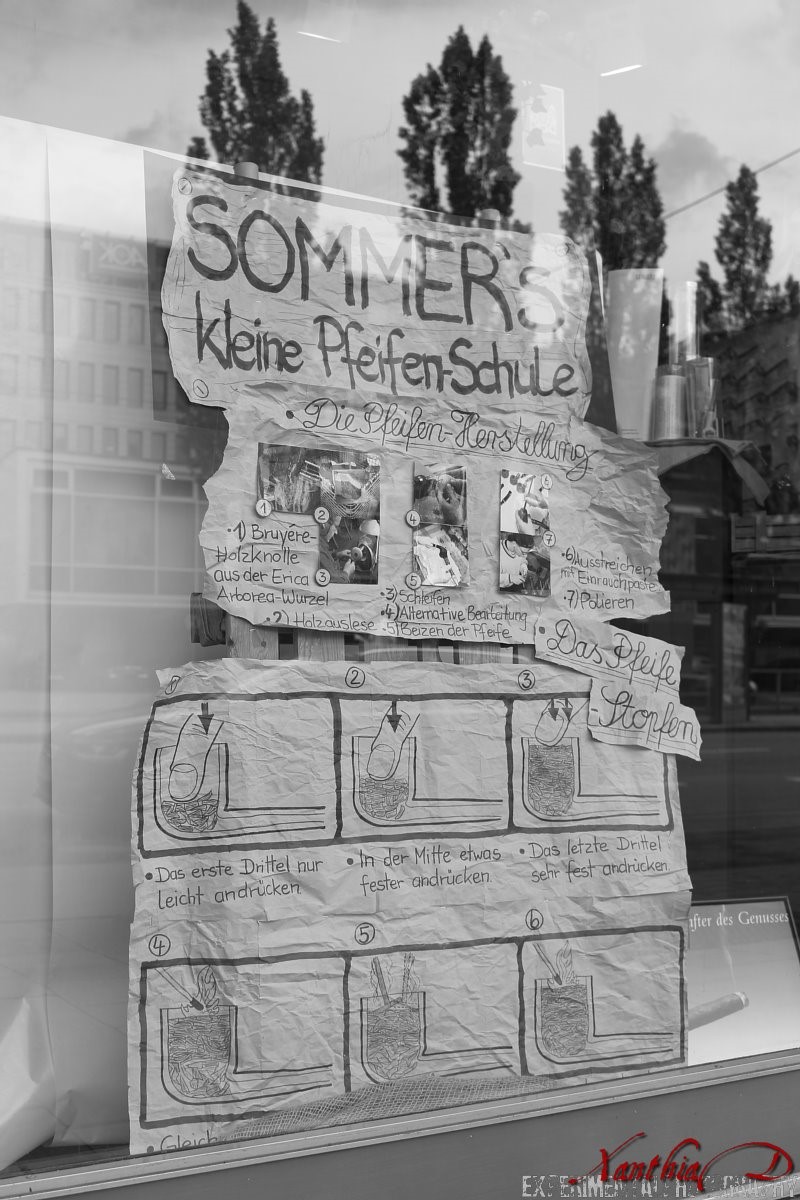 SOMMER'S
kleine Pfeifen-Schule
• Die Pfeifen-Herstellung
1
2
3
4
5
6
7
• 1) Bruyére-
Holzknolle
aus der Erica
Arborea-Wurzel
• 2) Holzauslese
• 3) Schleifen
• 4) Alternative Bearbeitung
• 5) Beizen der Pfeife
• 6) Ausstreichen
mit Einrauchpaste
• 7) Polieren
• Das Pfeife
-Stopfen
1
2
3
• Das erste Drittel nur
leicht andrücken.
• In der Mitte etwas
fester andrücken.
• Das letzte Drittel
sehr fest andrücken.
4
5
6
• Gleich
des Genusses
AOK
Xanthia D
EXPERIMENTAL PHOTOGRAPHY